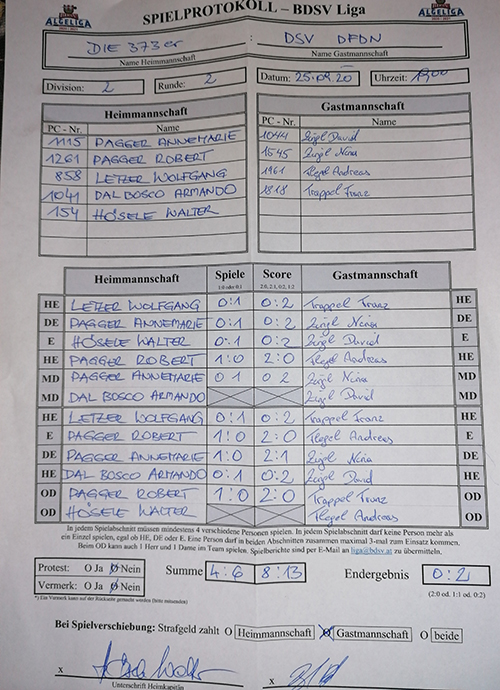 ALGELIGA
SPIELPROTOKOLL – BDSV Liga
ALGELIGA
DIE 373er : DSV DFDN
Name Heimmannschaft Name Gastmannschaft
Division: 2 Runde: 2 Datum: 25.09.20 Uhrzeit: 1900
Heimmannschaft Gastmannschaft
PC - Nr. Name PC - Nr. Name
1115 PAGGER ANNEMARIE 1044 David
1261 PAGGER ROBERT 1545 Nina
858 LETZER WOLFGANG 1961 Flegel Andreas
1041 DAL BOSCO ARMANDO 1818 Trappel Franz
154 HÖSELE WALTER
Heimmannschaft Spiele Score Gastmannschaft
1:0 oder 0:1 2:0, 2:1, 0:2, 1:2
HE LETZER WOLFGANG 0:1 0:2 Trappel Franz HE
DE PAGGER ANNEMARIE 0:1 0:2 Nina DE
E HÖSELE WALTER 0:1 0:2 David E
HE PAGGER ROBERT 1:0 2:0 Flegel Andreas HE
MD PAGGER ANNEMARIE 0 1 0 2 Nina MD
MD DAL BOSCO ARMANDO David MD
HE LETZER WOLFGANG 0:1 0:2 Trappel Franz HE
E PAGGER ROBERT 1:0 2:0 Flegel Andreas E
DE PAGGER ANNEMARIE 1:0 2:1 Nina DE
HE DAL BOSCO ARMANDO 0:1 0:2 David HE
OD PAGGER ROBERT 1:0 2:0 Trappel Franz OD
OD HÖSELE WALTER Flegel Andreas OD
In jedem Spielabschnitt müssen mindestens 4 verschiedene Personen spielen. In jedem Spielabschnitt darf keine Person mehr als
ein Einzel spielen, egal ob HE, DE oder E. Eine Person darf in beiden Abschnitten zusammen maximal 3-mal zum Einsatz kommen.
Beim OD kann auch 1 Herr und 1 Dame im Team spielen. Spielberichte sind per E-Mail an liga@bdsv.at zu übermitteln.
Protest: O Ja O Nein Summe 4:6 8:13 Endergebnis 0:2
Vermerk: O Ja O Nein (2:0 od. 1:1 od. 0:2)
*) Ein Vermerk kann auf der Rückseite gemacht werden (bitte ankreuzen)
Bei Spielverschiebung: Strafgeld zahlt O Heimmannschaft O Gastmannschaft O beide
x x
Unterschrift Heimkapitän